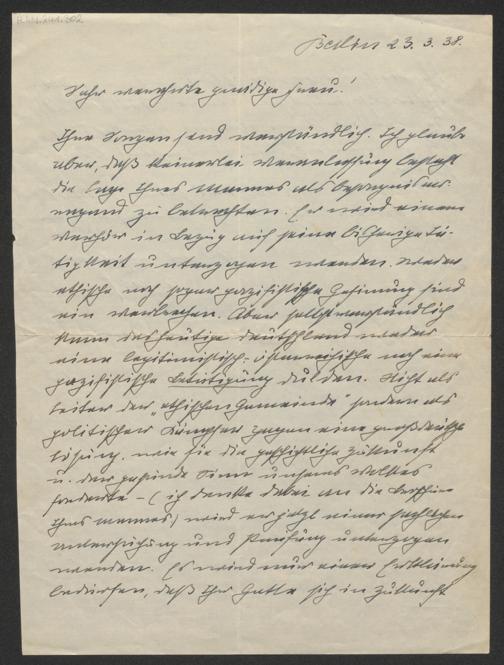 Berlin 23. 3. 38.
Sehr verehrte gnädige Frau!
Ihre Sorgen sind verständlich. Ich glaube
aber, daß keinerlei Veranlassung besteht
die Lage Ihres Mannes als besorgniser-
regend zu betrachten. Er wird einem
Verhör in Bezug auf seine bisherige Tä-
tigkeit unterzogen werden. Weder
ethische noch sogar pazifistische Gesinnung sind
ein Verbrechen. Aber selbstverständlich
kann das heutige Deutschland weder
eine legitimistisch-österreichische noch eine
pazifistische Betätigung dulden. Nicht als
Leiter der „ethischen Gemeinde" sondern als
politischer Kämpfer gegen eine großdeutsche
Lösung, wie sie die geschichtliche Zukunft
u. der gesunde Sinn unseres Volkes
forderte – (ich denke dabei an die
Ihres Mannes) wird er jetzt einer
Untersuchung und Prüfung unterzogen
werden. Es wird nur einer Erklärung
bedürfen, daß Ihr Gatte sich in Zukunft